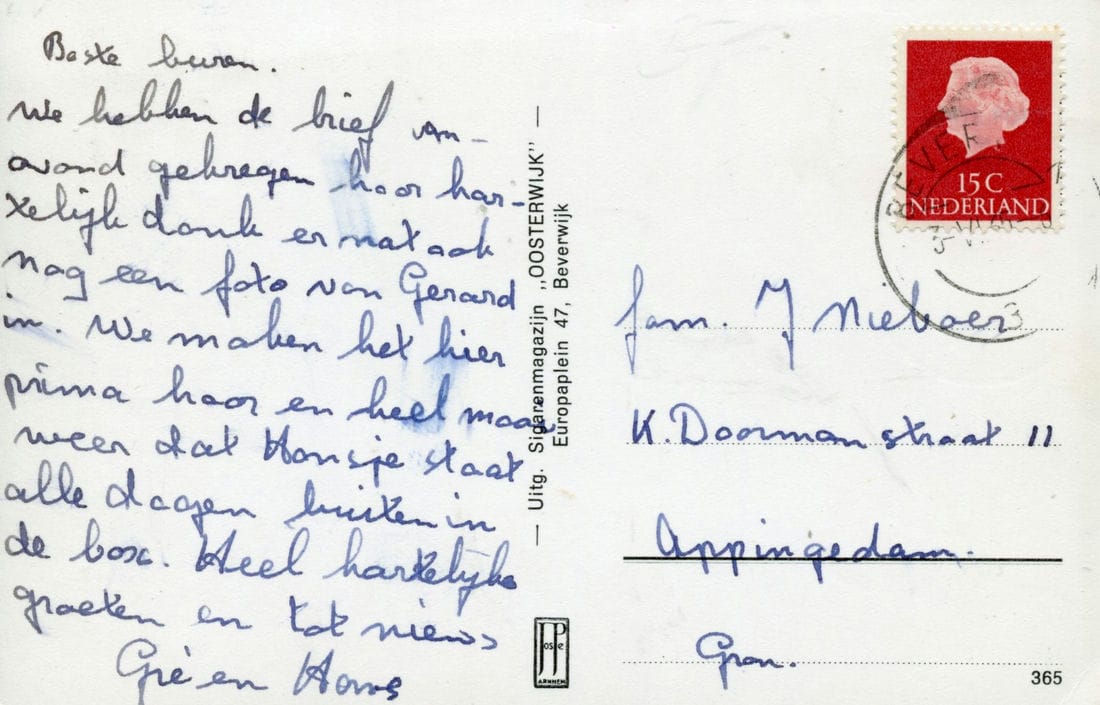 Beste buren.
We hebben de brief van-
avond gekregen hoor har-
telijk dank er zat ook
nog een foto van Gerard
in. We maken het hier
prima hoor en heel mooi
weer dat Hansje staat
alle dagen buiten in
de box. Heel hartelijke
groeten en tot nieuws
Gré en Hans
— Uitg. Sigarenmagazijn „OOSTERWIJK" —
Europaplein 47, Beverwijk
JosPe
ARNHEM
15 C
NEDERLAND
BEVER
3
fam. J Nieboer
K. Doormanstraat 11
Appingedam.
Gron.
365